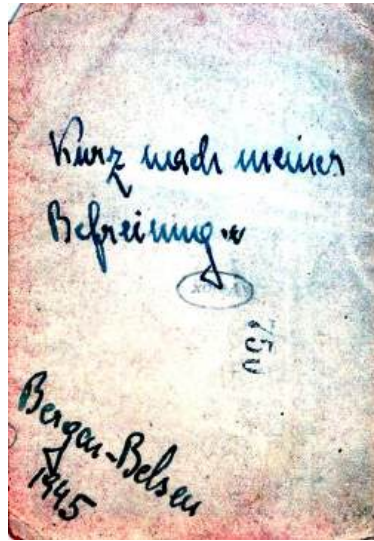 Kurz nach meiner
Befreiung
750
Bergen-Belsen
1945